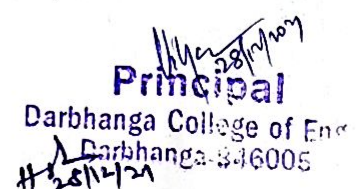 28/12/2021
Principal
Darbhanga College of Eng
Darbhanga-846005
28/12/21